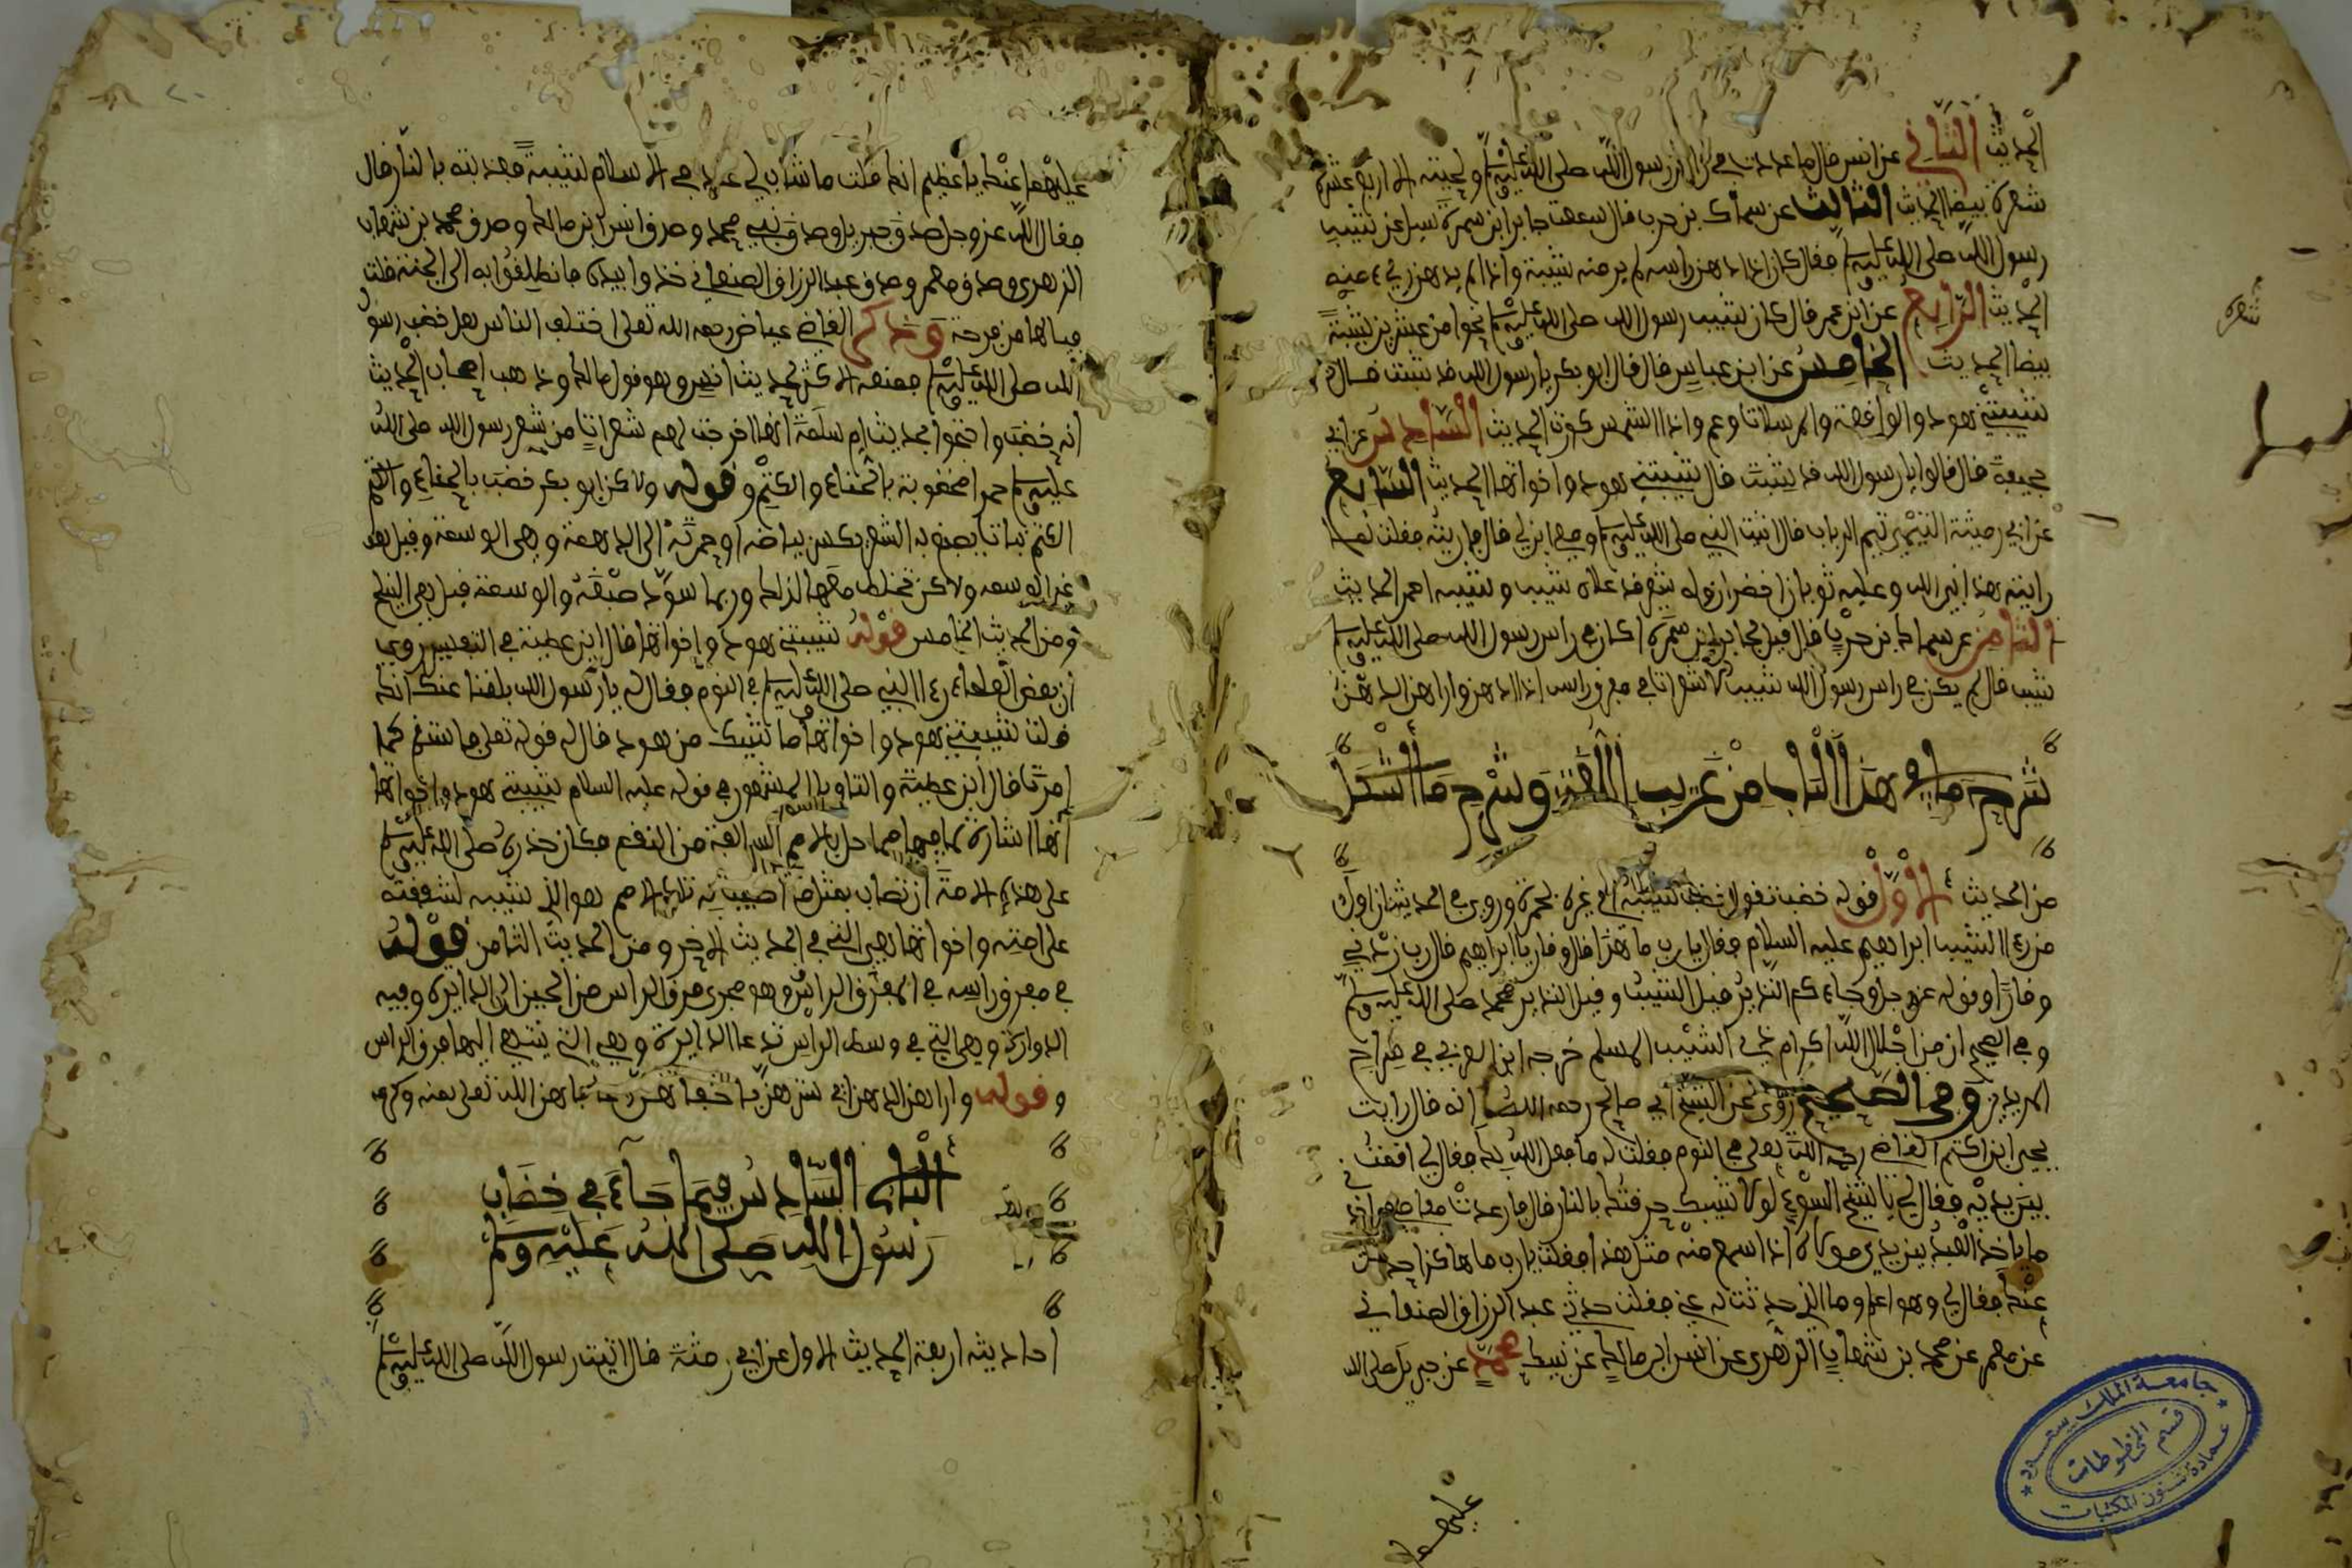 الحديث الثاني عن انس قال ما عددت في راس رسول الله صلى الله عليه وسلم ولحيته الا اربع عشرة
شعرة بيضا الحديث الثالث عن سماك بن حرب قال سمعت جابر ابن سمرة سيل عن شيب
رسول الله صلى الله عليه وسلم فقال كان اذا دهن راسه لم ير منه شيبة واذا لم يدهن ريء منه
الحديث الرابع عن ابن عمر قال كان شيب رسول الله صلى الله عليه وسلم نحوا من عشرين شيبة
بيضا الحديث الخامس عن ابن عباس قال قال ابو بكر يا رسول الله قد شبت قال
شيبتني هود والواقعة والمرسلات وعم واذا الشمس كورت الحديث السادس عن ابي
جحيفة قال قالوا يا رسول الله قد شبت قال شيبتني هود واخواتها الحديث السابع
عن ابي رمثة التيمي تيم الرباب قال اتيت النبي صلى الله عليه وسلم ومعي ابن لي قال فاريته فقلت لما
رايته هذا نبي الله وعليه ثوبان اخضران وله شعر قد علاه شيب وشيبه احمر الحديث
الثامن عن سماك بن حرب قال قيل لجابر ابن سمرة اكان في راس رسول الله صلى الله عليه وسلم
شيب قال لم يكن في راس رسول الله شيب الا شعرات في مفرق راسه اذا ادهن واراهن الدهن
شرح ما في هذا الباب من غريب اللغة وشرح ما اشكل
من الحديث الاول قوله خضب تقول خضب شيبه اي غيره بحمرة وروي في الحديث ان اول
من رءا الشيب ابراهيم عليه السلام فقال يا رب ما هذا قال وقار يا ابراهيم قال رب زدني
وقارا وقوله عز وجل وجاءكم النذير قيل الشيب وقيل النذير محمد صلى الله عليه وسلم
وفي الصحيح ان من اجلال الله اكرام ذي الشيب المسلم خرجه ابن العربي في سراج
المريدين وفي الصحيح روي عن الشيخ ابي صالح رحمه الله انه قال رايت
يحيى ابن اكثم القاضي رحمه الله تعالى في النوم فقلت له ما فعل الله بك فقال لي اوقفني
بين يديه فقال لي يا شيخ السوء لولا شيبك حرقتك بالنار قال فارعدت مفاصلي
ما ياخذ العبد بين يدي مولاه اذا سمع منه مثل هذا فقلت يا رب ما هاكذا حدثت
عنك فقال لي وهو اعلم وما الذي حدثت به عني فقلت حدثني عبد الرزاق الصنعاني
عن معمر عن محمد بن شهاب الزهري عن انس ابن مالك عن نبيك محمد عن جبريل صلى الله
عليهما
عليهما عنك يا عظيم انك قلت ما شاب لي عبد في الاسلام شيبة فعذبته بالنار قال
فقال الله عز وجل صدق جبريل وصدق نبيي محمد وصدق انس ابن مالك وصدق محمد بن شهاب
الزهري وصدق معمر وصدق عبد الرزاق الصنعاني خذوا بيده فانطلقوا به الى الجنة قلت
فيا لها من فرحة وذكر القاضي عياض رحمه الله تعلى اختلف الناس هل خضب رسول
الله صلى الله عليه وسلم فمنعه الاكثر لحديث انس وهو قول مالك وذهب اصحاب الحديث
انه خضب واحتجوا بحديث ام سلمة انها اخرجت لهم شعرات من شعر رسول الله صلى الله
عليه وسلم حمرا مخضوبة بالحناء والكتم وقوله ولاكن ابو بكر خضب بالحناء والكتم
الكتم نبات يصبغ به الشعر يكسر بياضه او حمرته الى الدهمة وهي الوسمة وقيل هو
غير الوسمة ولاكن تختلط معها لذلك وربما سود صبغه والوسمة قيل هي النيلج
ومن الحديث الخامس قوله شيبتني هود واخواتها قال ابن عطية في التفسير روي
ان بعض العلماء رءا النبي صلى الله عليه وسلم في النوم فقال له يا رسول الله بلغنا عنك انك
قلت شيبتني هود واخواتها ما شيبك من هود قال له قوله تعلى فاستقم كما
امرت قال ابن عطية والتاويل المشهور في قوله عليه السلام شيبتني هود واخواتها
انها اشارة لما فيها مما حل بالامم السالفة من النقم فكان حذره صلى الله عليه وسلم
على هذه الامة ان تصاب بمثل ما اصيبت به تلك الامم هو الذي شيبه لشفقته
على امته واخواتها هي التي في الحديث الاخر ومن الحديث الثامن قوله
في مفرق راسه في المفرق الراس وهو مجرى فرق الراس من الجبين الى الدايرة وفيه
الدوارة وهي التي في وسط الراس تدعا الدايرة وهي التي ينتهي اليها فرق الراس
وقوله واراهن الدهن اي سترهن
الباب السادس فيما جاء في خضاب
رسول الله صلى الله عليه وسلم
احاديثه اربعة الحديث الاول عن ابي رمثة قال اتيت رسول الله صلى الله عليه وسلم
جامعة الملك سعود
قسم المخطوطات
عمادة شئون المكتبات